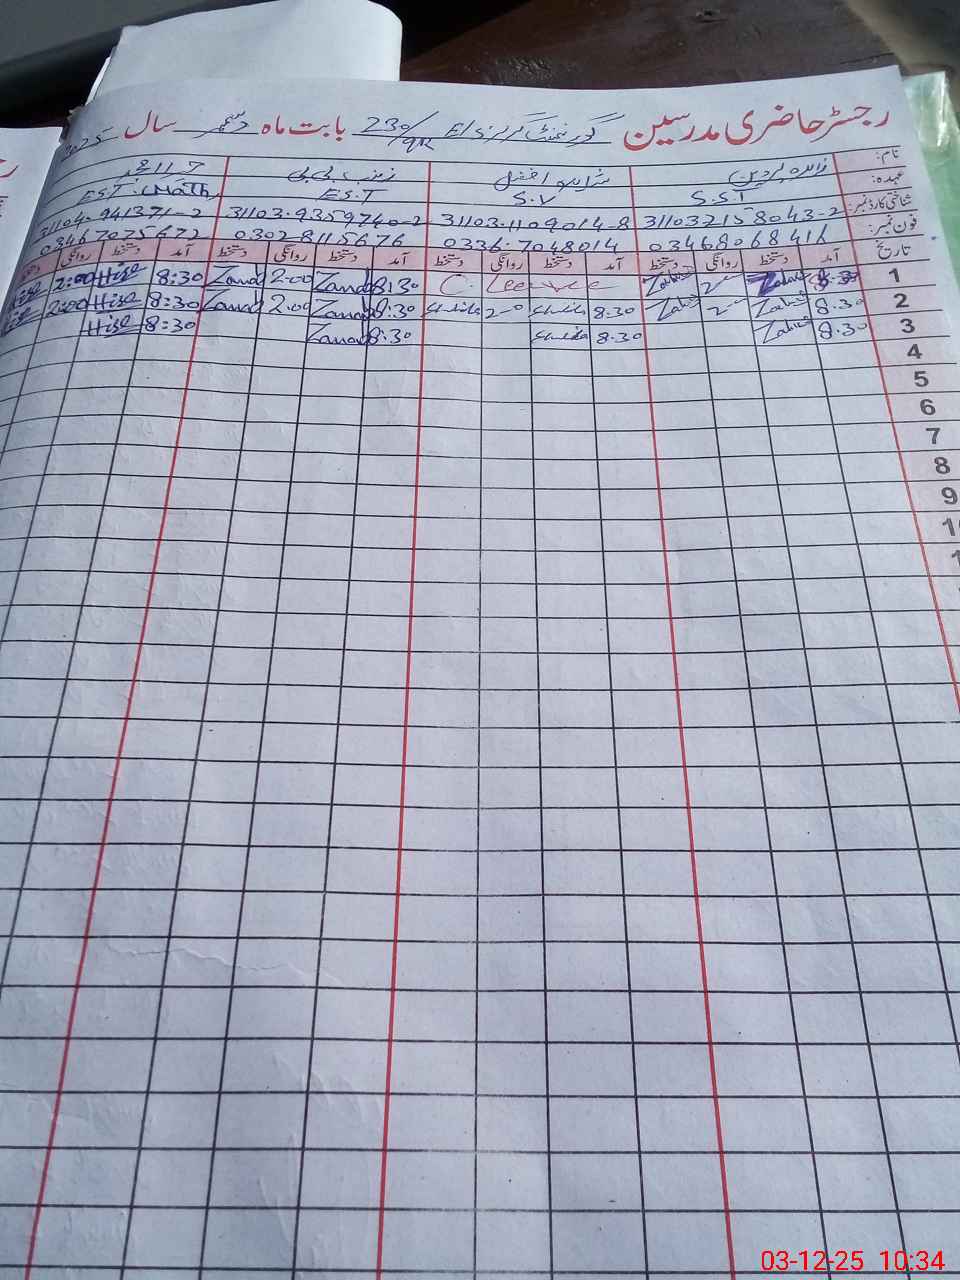 رجسٹر حاضری مدرسین گورنمنٹ گرلز E/S 230/9R بابت ماہ دسمبر سال 2025
نام: زاہدہ پروین زینب بی بی
عہدہ: S.S.T S.V E.S.T E.S.T (Math)
شناختی کارڈ نمبر: 311032158043-2 31103.1109014-8 31103.9359740-2 31104.941371-2
فون نمبر: 03468068416 0336.7048014 0302-8115676 03467075672
تاریخ آمد دستخط روانگی دستخط آمد دستخط روانگی دستخط آمد دستخط روانگی دستخط آمد دستخط روانگی دستخط
1 8.30 2 C. Leave 8.30 Zanab 2.00 Zanab 8:30 2:00
2 8.30 2 8.30 2 8.30 Zanab 2.00 Zanab 8:30 2:00
3 8.30 8.30 8.30 Zanab 8:30
4
5
6
7
8
9
03-12-25 10:34